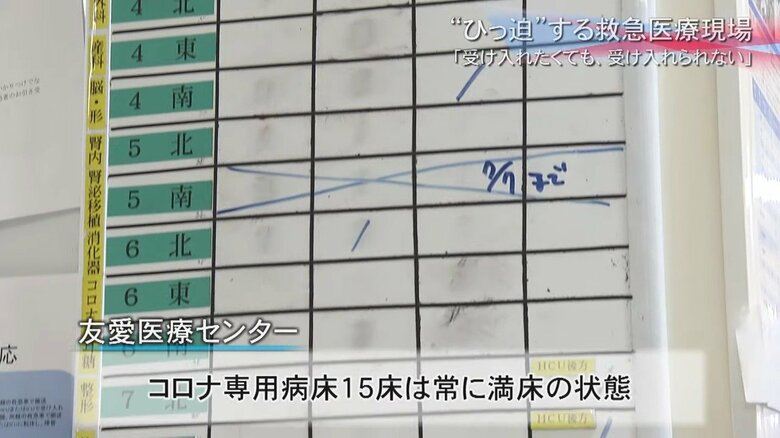 "ひっ迫"する救急医療現場
「受け入れたくても、受け入れられない」
外科
4 北
産科
4 東
脳・形
4 南
腎内
5 北
腎泌移植
5 南
7/7 まで
消化器
6 北
コロナ
6 東
糖
6 南
整形
7 北
HCU後方
HCU後方
応
友愛医療センター
コロナ専用病床15床は常に満床の状態